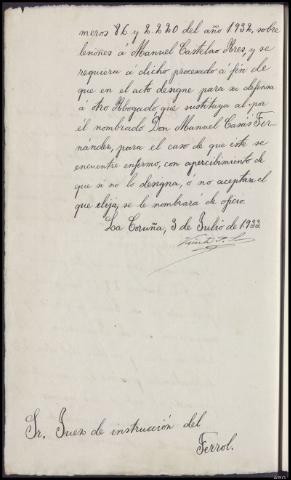 meros 86 y 2.220 del año 1932, sobre
lesiones á Manuel Castelao Ares, y se
requiera á dicho procesado á fin de
que en el acto designe para su defensa
á otro Abogado que sustituya al por
él nombrado Don Manuel Casás Fer-
nández, para el caso de que éste se
encuentre enfermo, con apercibimiento de
que si no lo designa, ó no aceptase el
que elija, se le nombrará de oficio.
La Coruña, 3 de Julio de 1933
Sr. Juez de instrucción del
Ferrol.